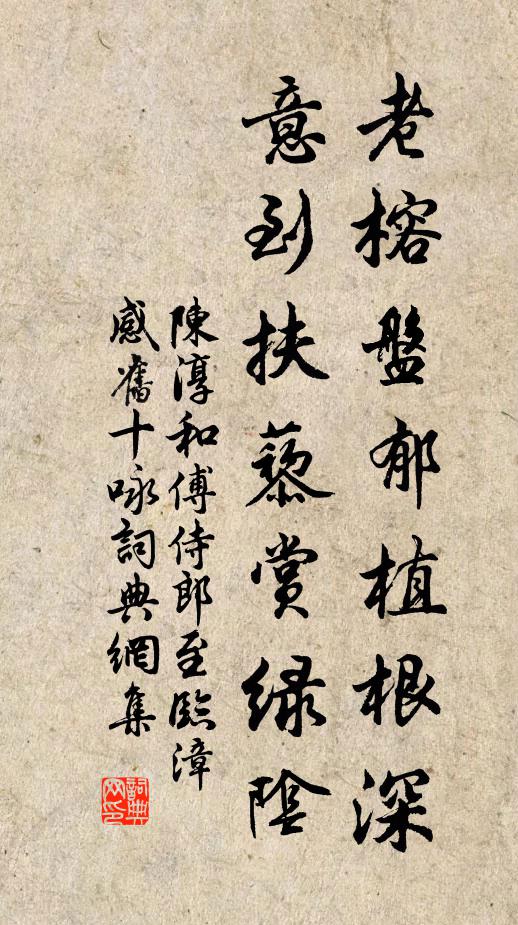 老榕盤郁植根深
意到扶藜賞緑陰
陳淳和傅侍郎至臨漳
感舊十咏詞典網集
詞典
网印